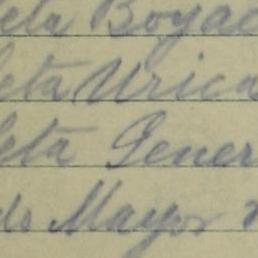 eta Boyac
eta Urica
leta Gener
do Mayor